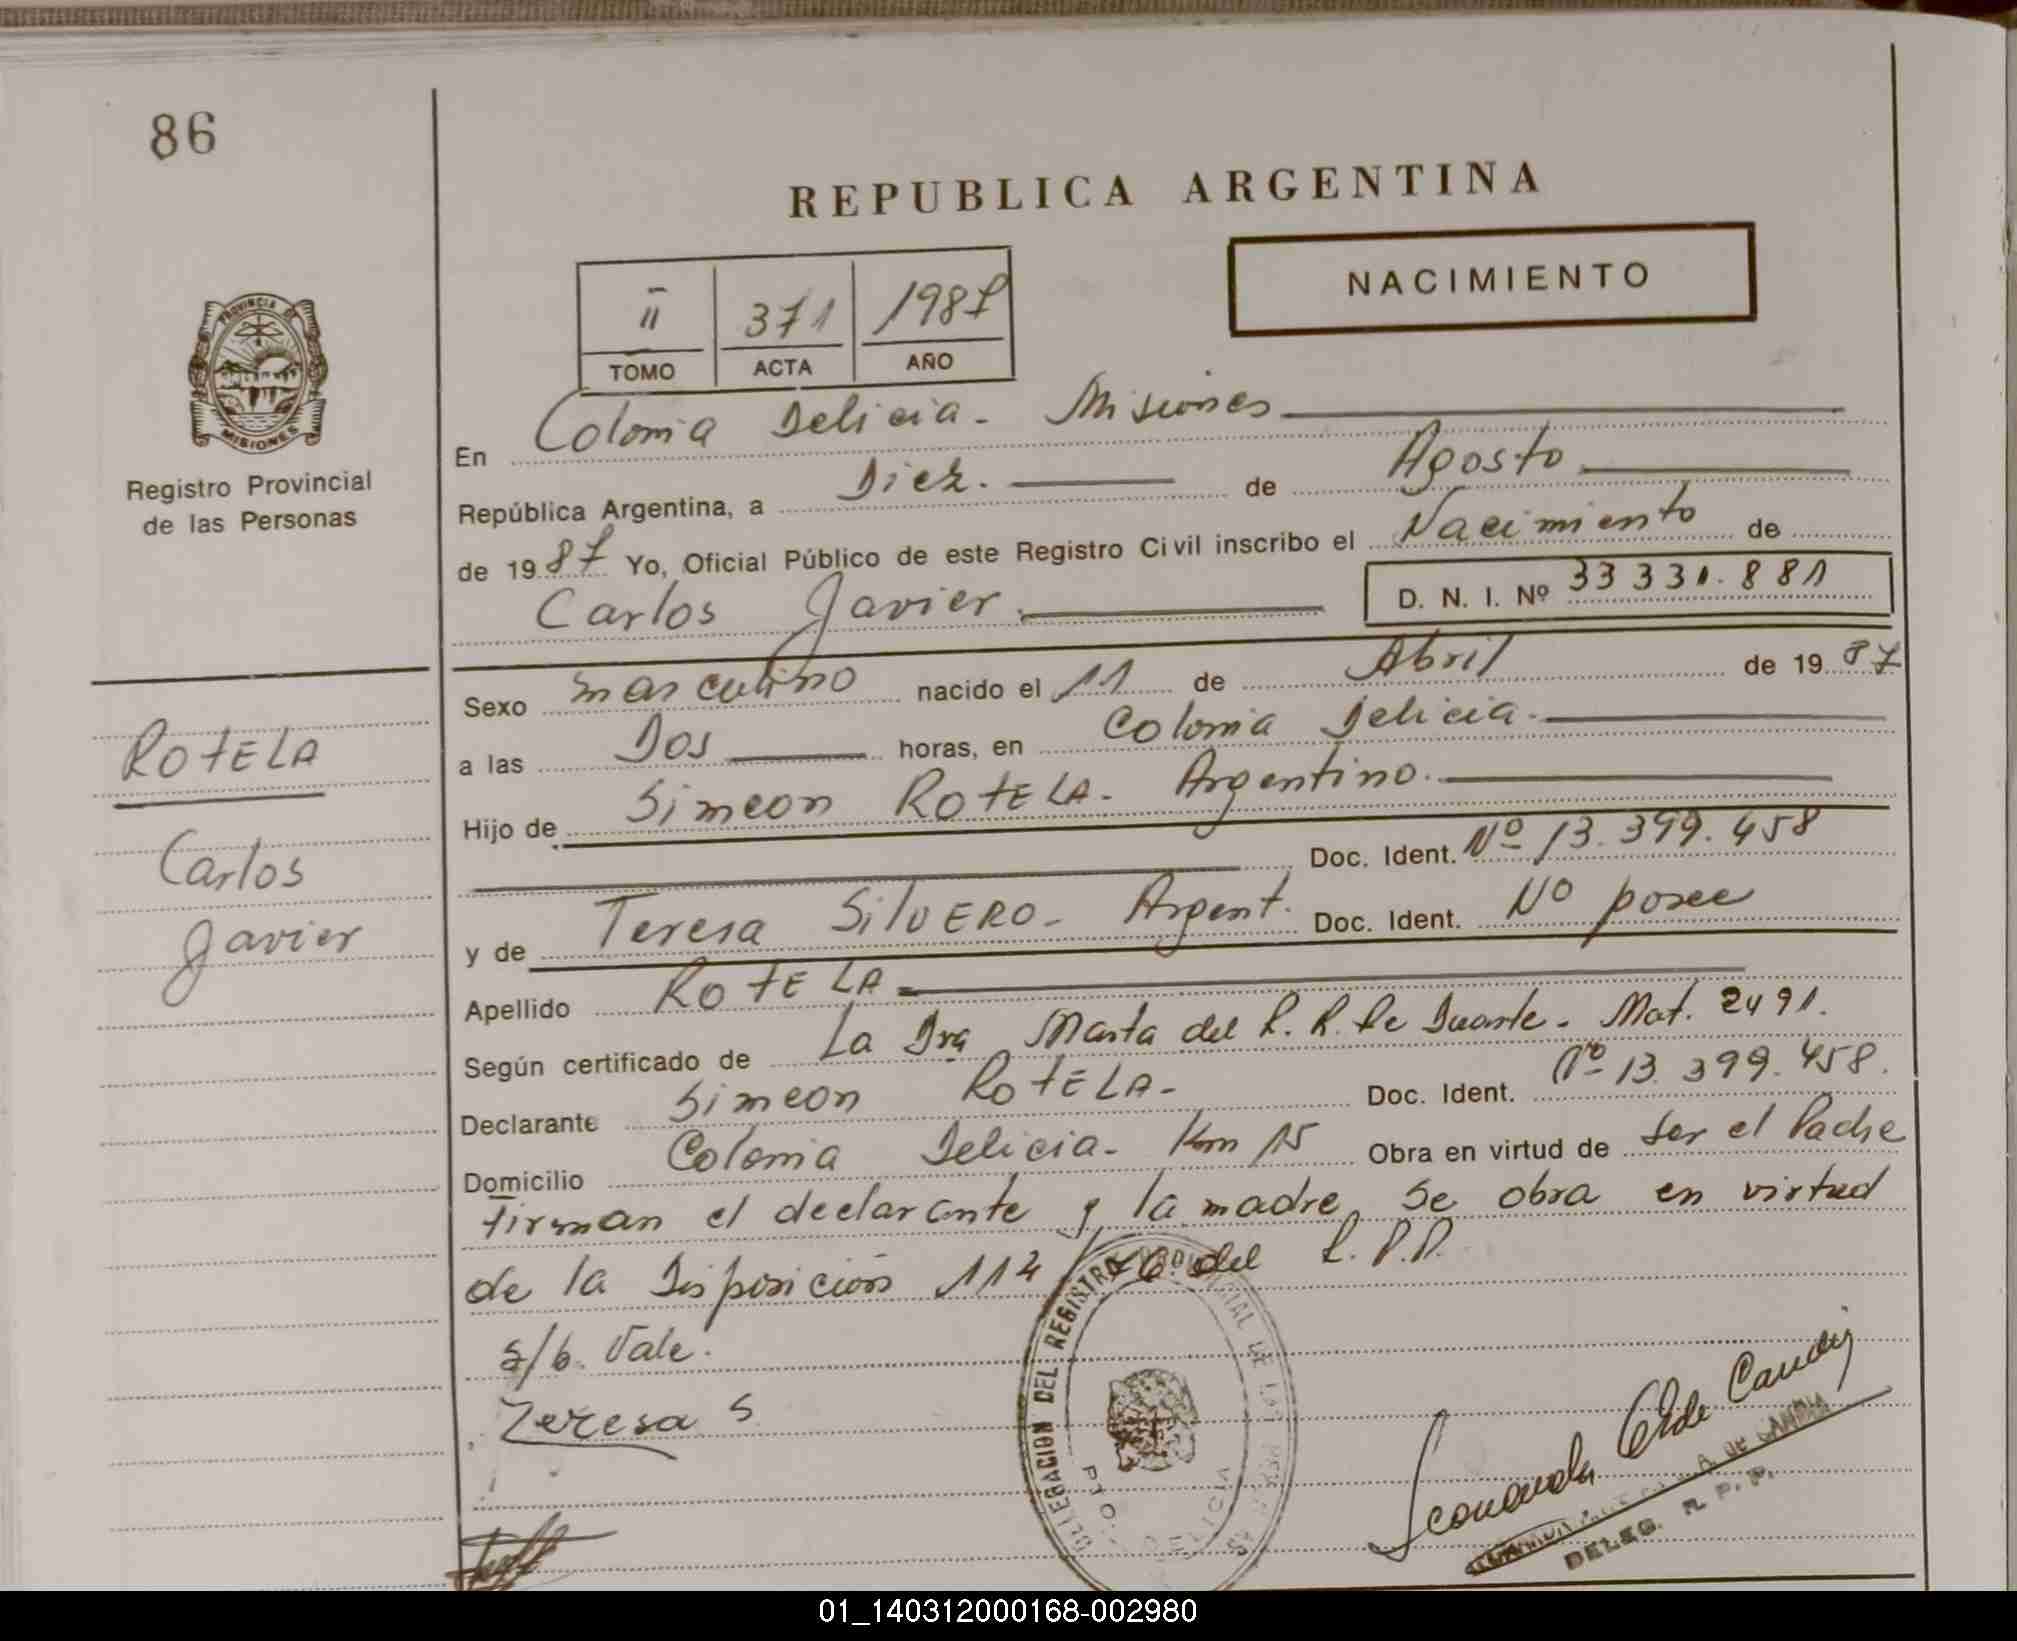 86
REPUBLICA ARGENTINA
NACIMIENTO
II 371 1987
TOMO ACTA AÑO
PROVINCIA DE
MISIONES
Registro Provincial
de las Personas
En Colonia Delicia - Misiones
República Argentina, a Diez. de Agosto
de 1987 Yo, Oficial Público de este Registro Civil inscribo el Nacimiento de
Carlos Javier. D. N. I. Nº 33 331.881
Sexo masculino nacido el 11 de Abril de 1987
a las Dos horas, en Colonia Delicia.
Hijo de Simeon ROTELA - Argentino.
Doc. Ident. Nº 13.399.458
y de Teresa SilVERO - Argent. Doc. Ident. No posee
Apellido ROTELA
Según certificado de La Dra Marta del R. R. De Duarte - Mat. 2491.
Declarante Simeon ROTELA - Doc. Ident. Nº 13.399.458.
Domicilio Colonia Delicia - Km 15 Obra en virtud de ser el Padre
firman el declarante y la madre, se obra en virtud
de la Disposición 114/76 del R.P.P.
s/b. Vale.
Teresa S
ROTELA
Carlos
Javier
DELEGACION DEL REGISTRO PROVINCIAL DE LAS PERSONAS
PTO. DELICIA
A. DE CANDIA
DELEG. R. P. P.
01_140312000168-002980